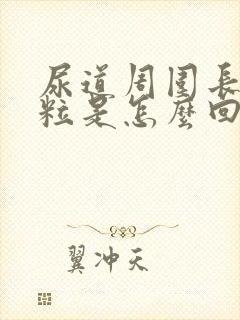 尿道周围長
粒是怎麼回
翼冲天